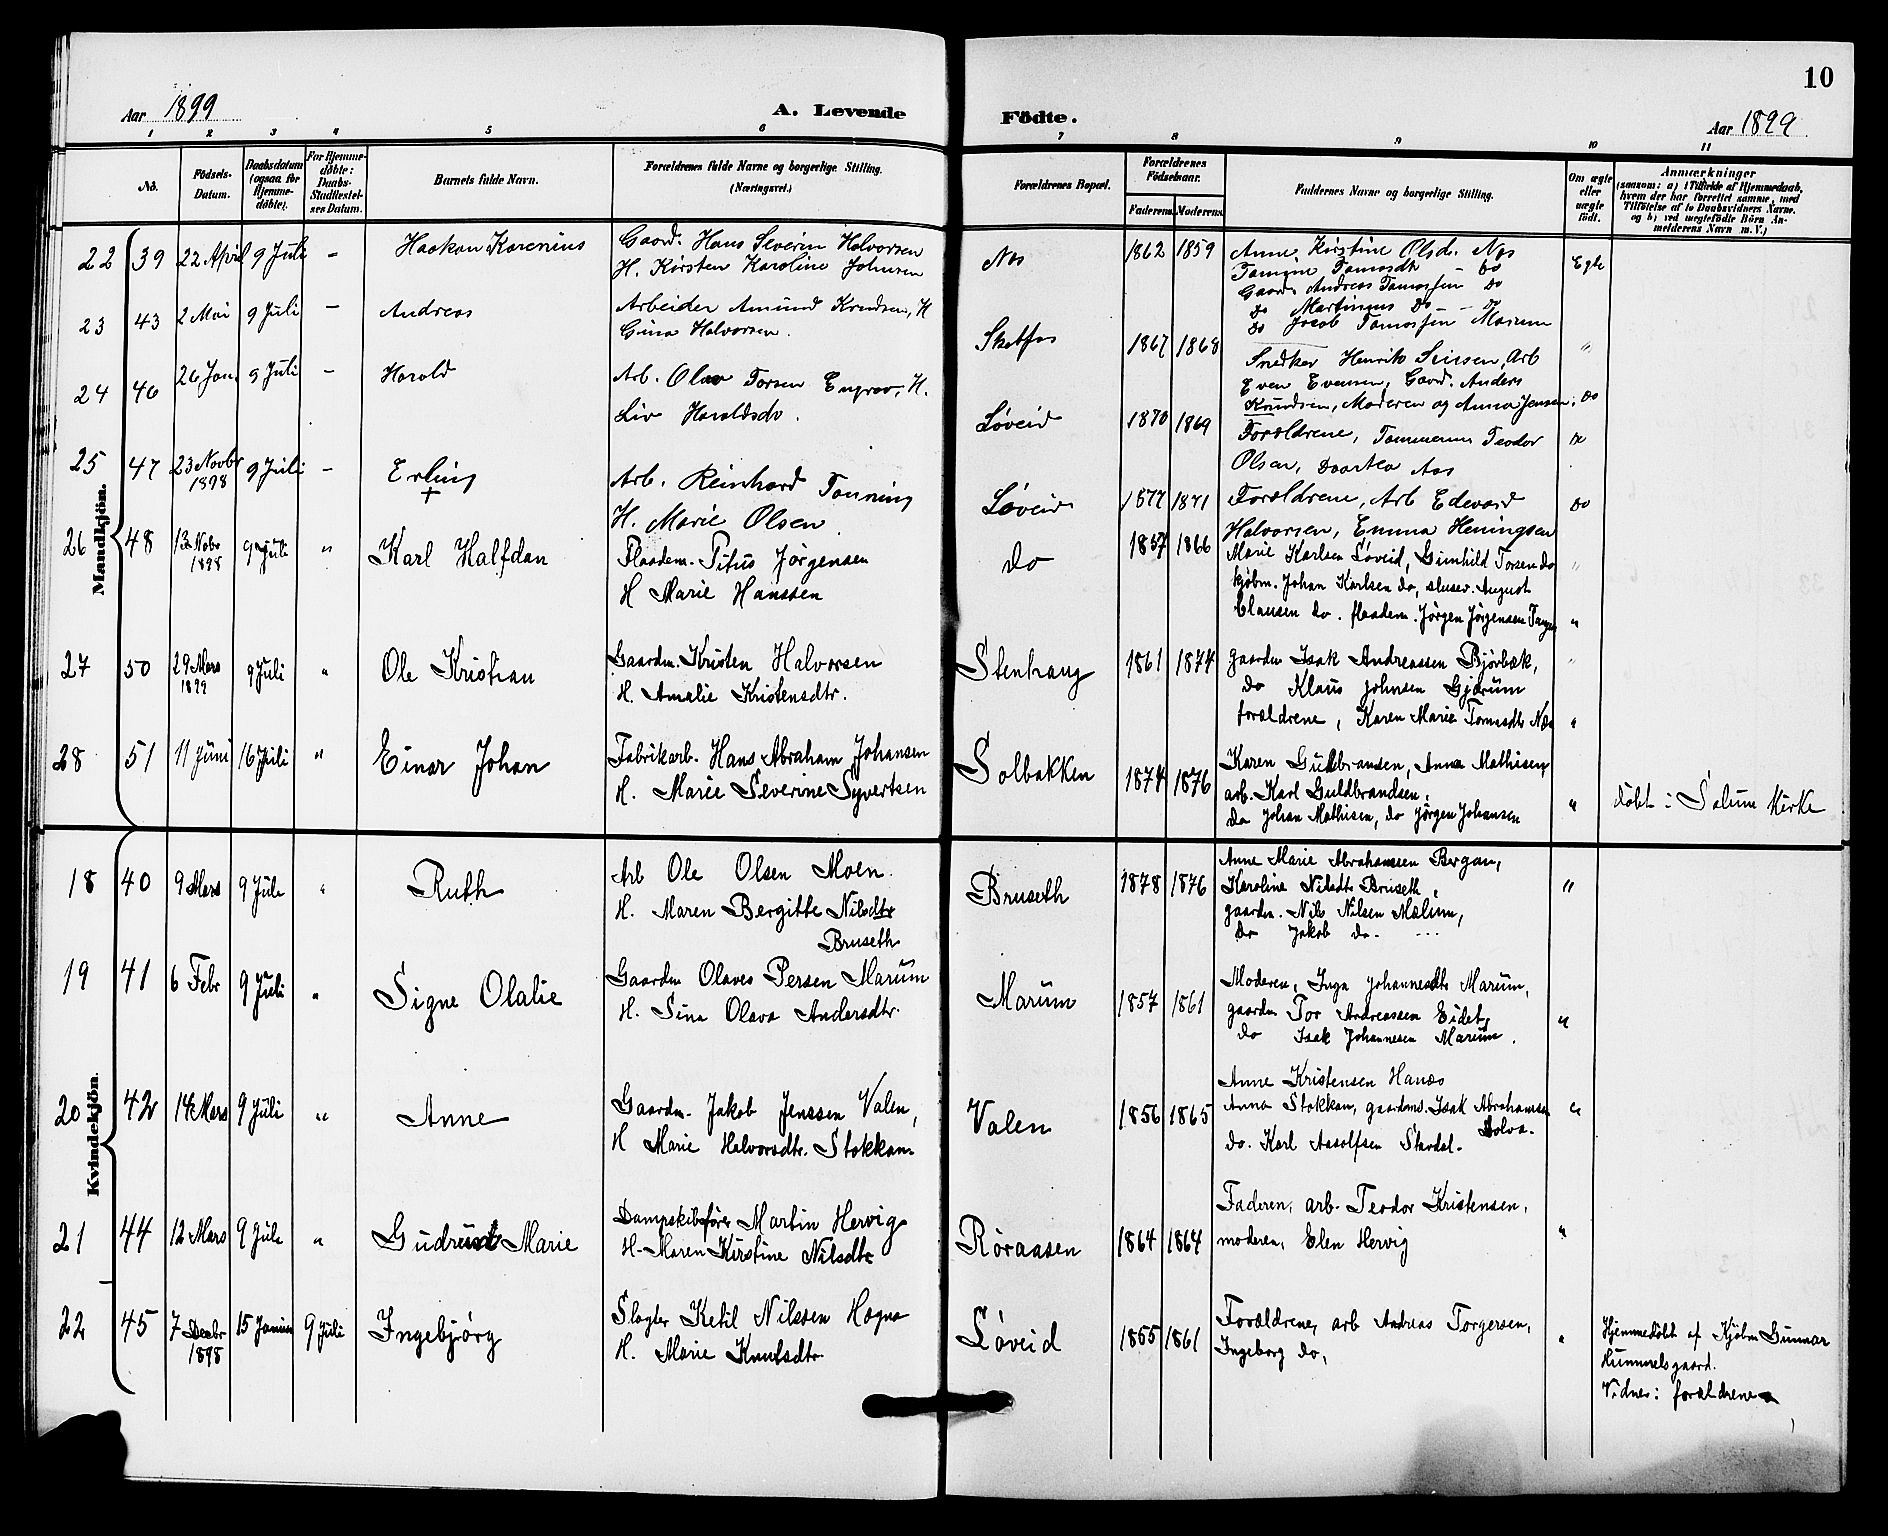 10
Aar 1899
A. Levende Födte.
Aar 1899
1 2 3 4 5 6 7 8 9 10 11
No.
Födsels-Datum.
Daabsdatum (ogsaa for Hjemme-döbte).
For Hjemme-döbte: Daabs-Stadfæstel-ses Datum.
Barnets fulde Navn.
Forældrenes fulde Navne og borgerlige Stilling. (Næringsvei.)
Forældrenes Bopæl.
Forældrenes Födselsaar.
Faderens. Moderens.
Faddernes Navne og borgerlige Stilling.
Om ægte eller uægte födt.
Anmærkninger
(saasom: a) i Tilfælde af Hjemmedaab, hvem der har forrettet samme, med Tilföielse af to Daabsvidners Navne, og b) ved uægtefödte Börn An-melderens Navn m. V.)
Mandkjön.
22 39 22 April 9 Juli – Haakon Karenius
Gaard. Hans Severin Halvorsen
H. Kirsten Karoline Johnsen
Næs 1862 1859
Anne Kirstine Olsdr. Næs
Tomine Tomasdt – do
Gaard. Andreas Tomassen do
do Martinius do –
do Jacob Tomassen – Marum
Egte
23 43 2 Mai 9 Juli – Andreas
Arbeider Amund Knudsen, H
Gina Halvorsen.
Skotfos 1867 1868
Snedker Henrik Simsen, Arb
Even Evensen, Gard. Anders
Knudsen, Moderen og Anna Jensen. do
"
24 46 26 Jan. 9 Juli – Harald
Arb. Olav Torsen Engrav, H.
Liv Haroldsdr.
Løveid 1870 1869
Forældrene, Tømmerm Teodor
Olsen, Dorthea Aas
do
25 47 23 Novbr 1898 9 Juli – Erling +
Arb. Reinhard Tønning
H. Marie Olsen
Løveid 1877 1871
Forældrene, Arb Edevard
Halvorsen, Emma Heningsen
do
26 48 13 Nobr 1898 9 Juli " Karl Halfdan
Flaadem. Titus Jørgensen
H Marie Hanssen
do 1857 1866
Marie Karlsen Løveid, Gunhild Torsen do
kjøbm. Johan Karlsen do, sluser. August
Clausen do. flaadem. Jørgen Jørgensen Tangen
"
27 50 29 Mars 1899 9 Juli " Ole Kristian
Gaardm. Kristen Halvorsen
H. Amalie Kristensdtr.
Stenhaug 1861 1874
gaardm Isak Andreassen Bjørbæk,
do Klaus Johnsen Gjærum
forældrene, Karen Marie Tomasdtr Næs
"
28 51 11 Juni 16 Juli " Einar Johan
Fabrikarb. Hans Abraham Johansen
H. Marie Severine Syvertsen
Solbakken 1874 1876
Karen Guldbrandsen, Anna Mathisen,
arb. Karl Guldbrandsen,
do Johan Mathisen, do Jørgen Johansen
"
døbt i Solum Kirke
Kvindekjön.
18 40 9 Mars 9 Juli " Ruth
Arb Ole Olsen Moen.
H. Maren Bergitte Nilsdtr
Bruseth
Bruseth 1878 1876
Anne Marie Abrahamsen Bergan,
Karoline Nilsdtr Bruseth,
gaardm. Nils Nilsen Mælum,
do Jakob do.
"
19 41 6 Febr 9 Juli " Signe Olalie
Gaardm Olaves Persen Marum
H. Sina Olava Andersdtr.
Marum 1857 1861
Moderen, Inga Johannesdtr Marum,
gaardm Tor Andreassen Eidet,
do Isak Johannesen Marum.
"
20 42 14 Mars 9 Juli " Anne
Gaardm. Jakob Jenssen Valen,
H Marie Halvorsdtr. Stokkan
Valen 1856 1865
Anne Kristensen Hanæs
Anna Stokkan, gaardm. Isak Abrahamsen
Dolva.
do. Karl Aasolfsen Stardal.
"
21 44 12 Mars 9 Juli " Gudrun Marie
Dampskibsfører Martin Hervig
H. Maren Kirstine Nilsdtr
Röraasen 1864 1864
Faderen, arb. Teodor Kristensen,
moderen, Elen Hervig
"
22 45 7 Decbr 1898 15 Januar 9 Juli Ingebjörg
Slagter Ketil Nilssen Hogna
H. Marie Knutsdtr
Løveid 1855 1861
Forældrene, arb Andreas Torgersen,
Ingeborg do,
"
Hjemmedøbt af Kjøbm Gunnar
Hummelsgaard.
Vidner: forældrene